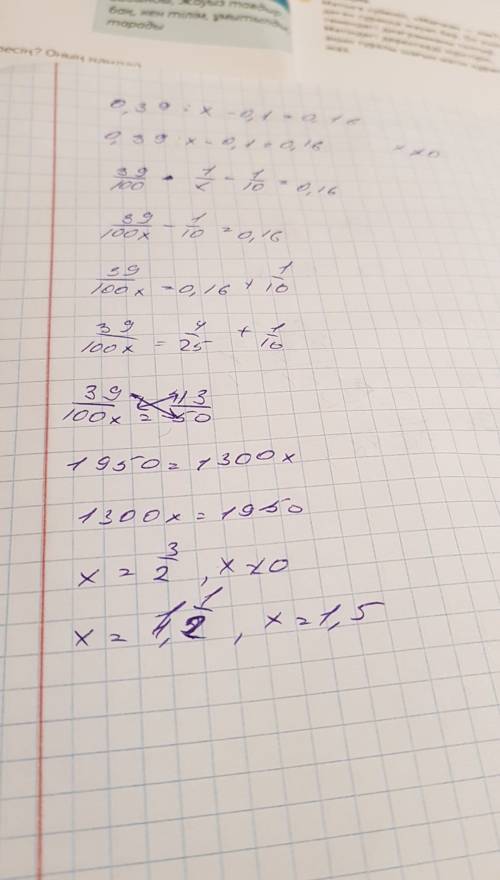 бан, кен тілім, ұмытылды,
тарады
0,39 : x - 0,1 = 0,16
0,39 : x - 0,1 = 0,16 x ≠ 0
39/100 · 1/x - 1/10 = 0,16
39/100x - 1/10 = 0,16
39/100x = 0,16 + 1/10
39/100x = 4/25 + 1/10
39/100x = 13/50
1950 = 1300x
1300x = 1950
x = 3/2 , x ≠ 0
x = 1 1/2 , x = 1,5